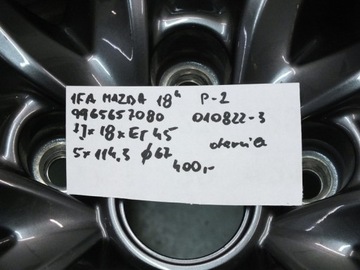 1FA MAZDA 18" P-2
9965657080 010822-3
7J x 18 x ET 45
5 x 114,3 ϕ67
400,-